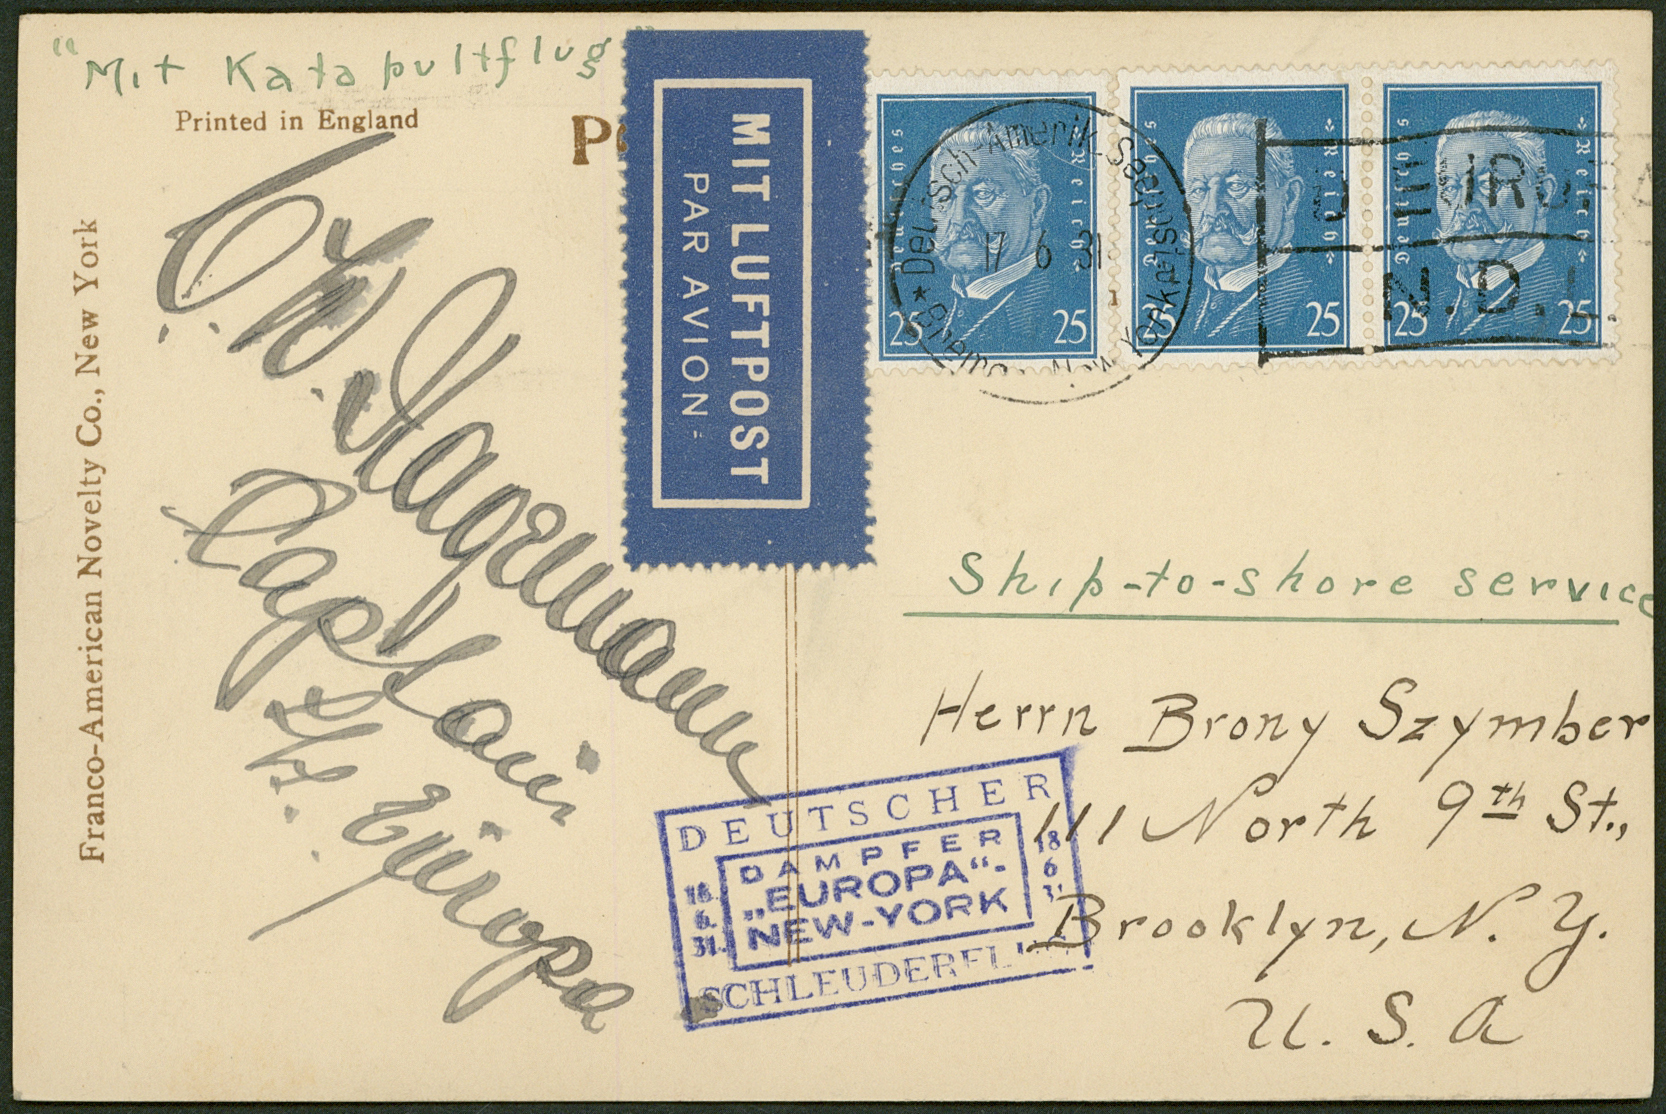 "Mit Katapultflug"
Printed in England
Franco-American Novelty Co., New York
MIT LUFTPOST
PAR AVION
Deutsches Reich
25 25
Deutsches Reich
25 25
Deutsches Reich
25 25
Deutsch-Amerik. Seepost
Bremen New York
17 6 31
D. EUROPA
N.D.L.
Hagemann
Captain
Europa
Ship-to-shore service
Herrn Brony Szymber
111 North 9th St.,
Brooklyn, N. Y.
U. S. A
DEUTSCHER
DAMPFER
„EUROPA“-
NEW-YORK
18. 6. 31.
18 6 31
SCHLEUDERFL